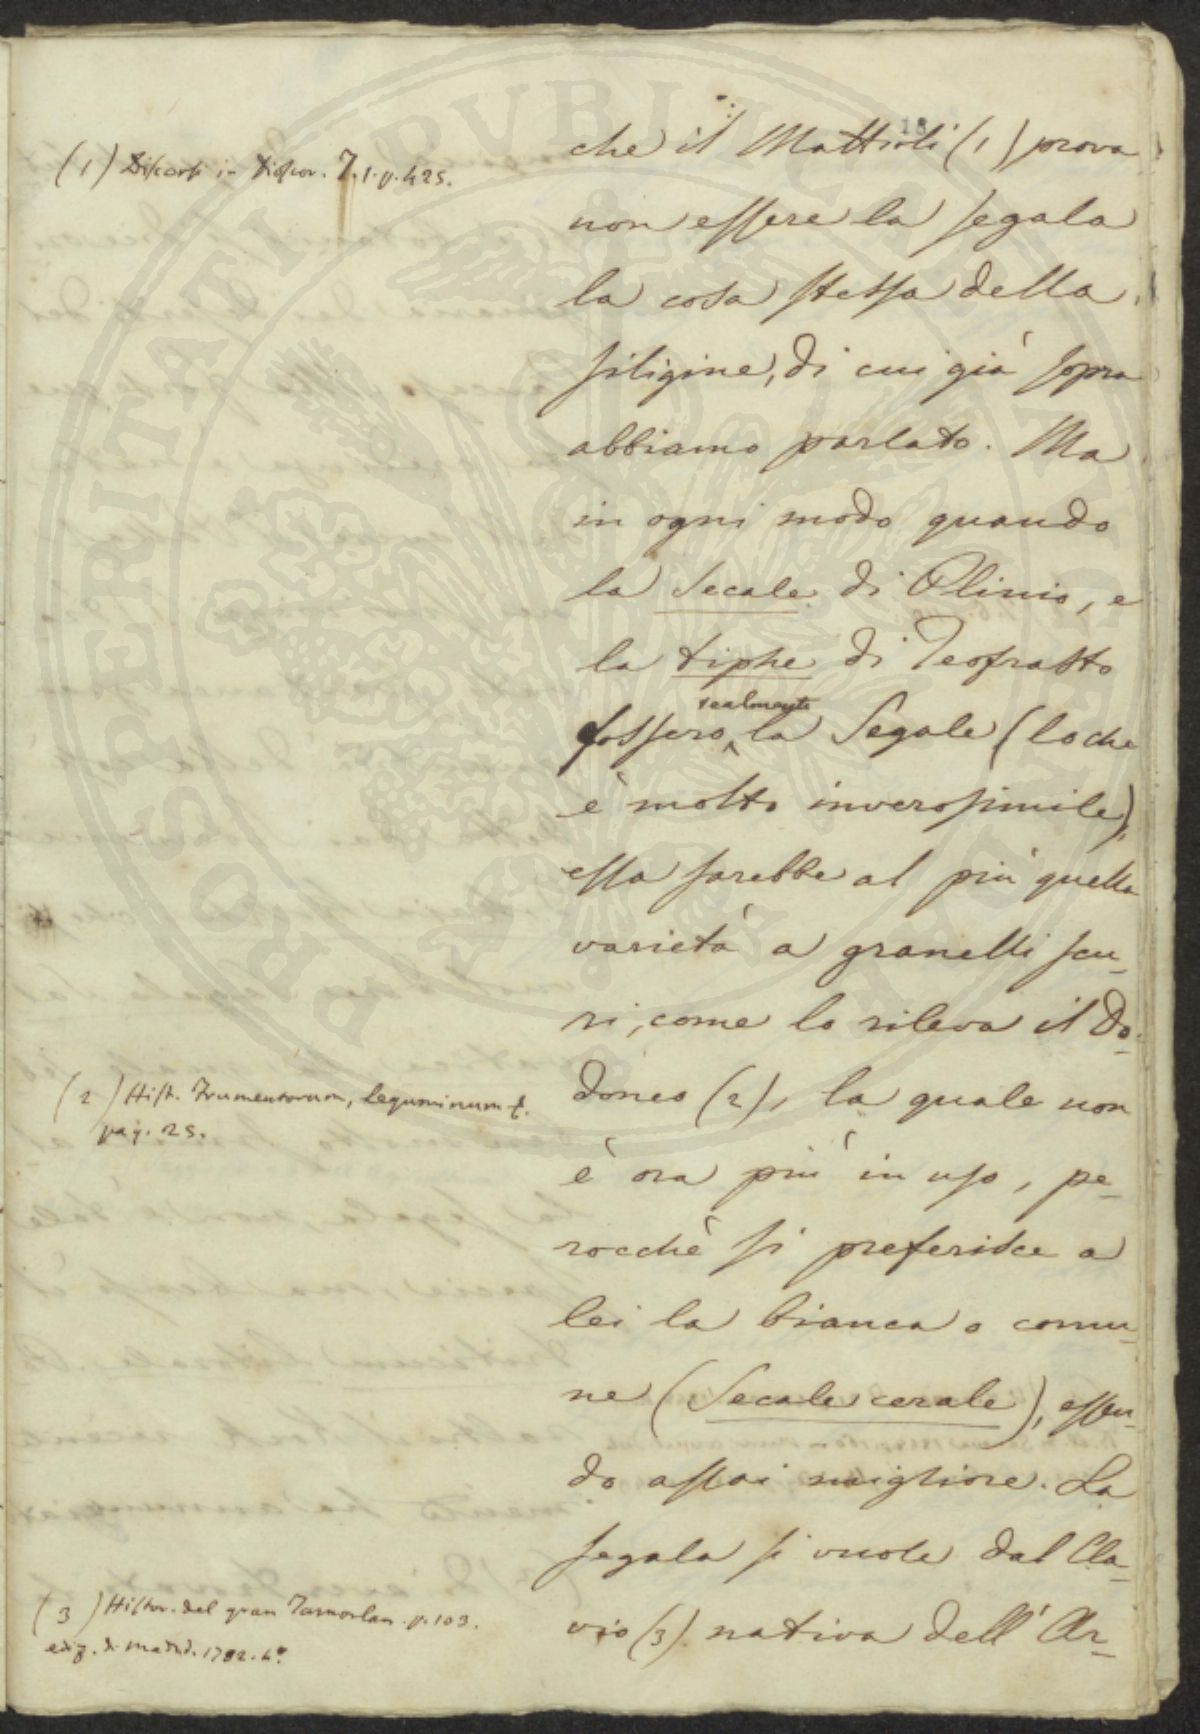 18
che il Mattioli (1) prova
non essere la segala
la cosa stessa della
siligine, di cui già sopra
abbiamo parlato. Ma
in ogni modo quando
la Secale di Plinio, e
la tiphe di Teofrasto
realmente
fossero la Segale (loche
è molto inverosimile),
essa sarebbe al più quella
varietà a granelli scu_
ri, come lo rileva il Do_
doneo (2), la quale non
è ora più in uso, pe_
rocchè si preferisce a
lei la bianca o comu_
ne (Secale cerale), essen_
do assai migliore. La
segala si vuole dal Cla_
vio (3) nativa dell'Ar_
(1) Discorsi in Dioscor. T. 1. p. 425.
(2) Hist. Frumentorum, leguminum
pag. 25.
(3) Histor. del gran Tamorlan. p. 103.
ediz. di Madrid. 1782. 4°.
PROSPERITATI PVBLICAE AVGENDAE